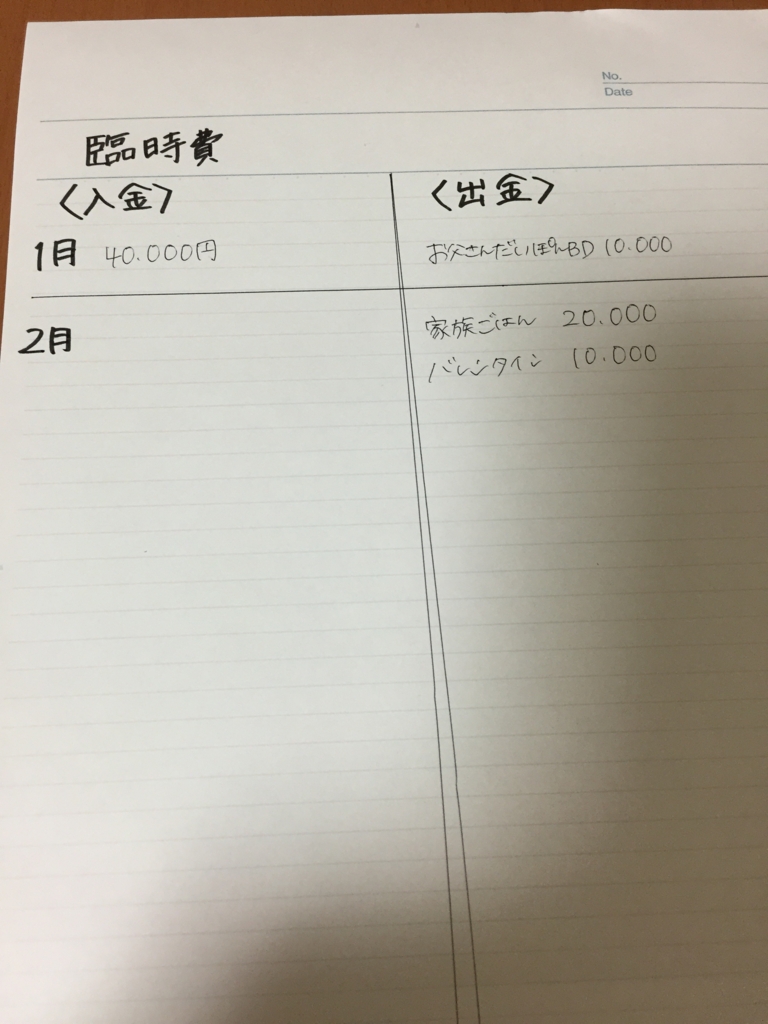 No.
Date
臨時費
〈入金〉 〈出金〉
1月 40.000円 お父さんだいぽんBD 10.000
2月 家族ごはん 20.000
バレンタイン 10.000